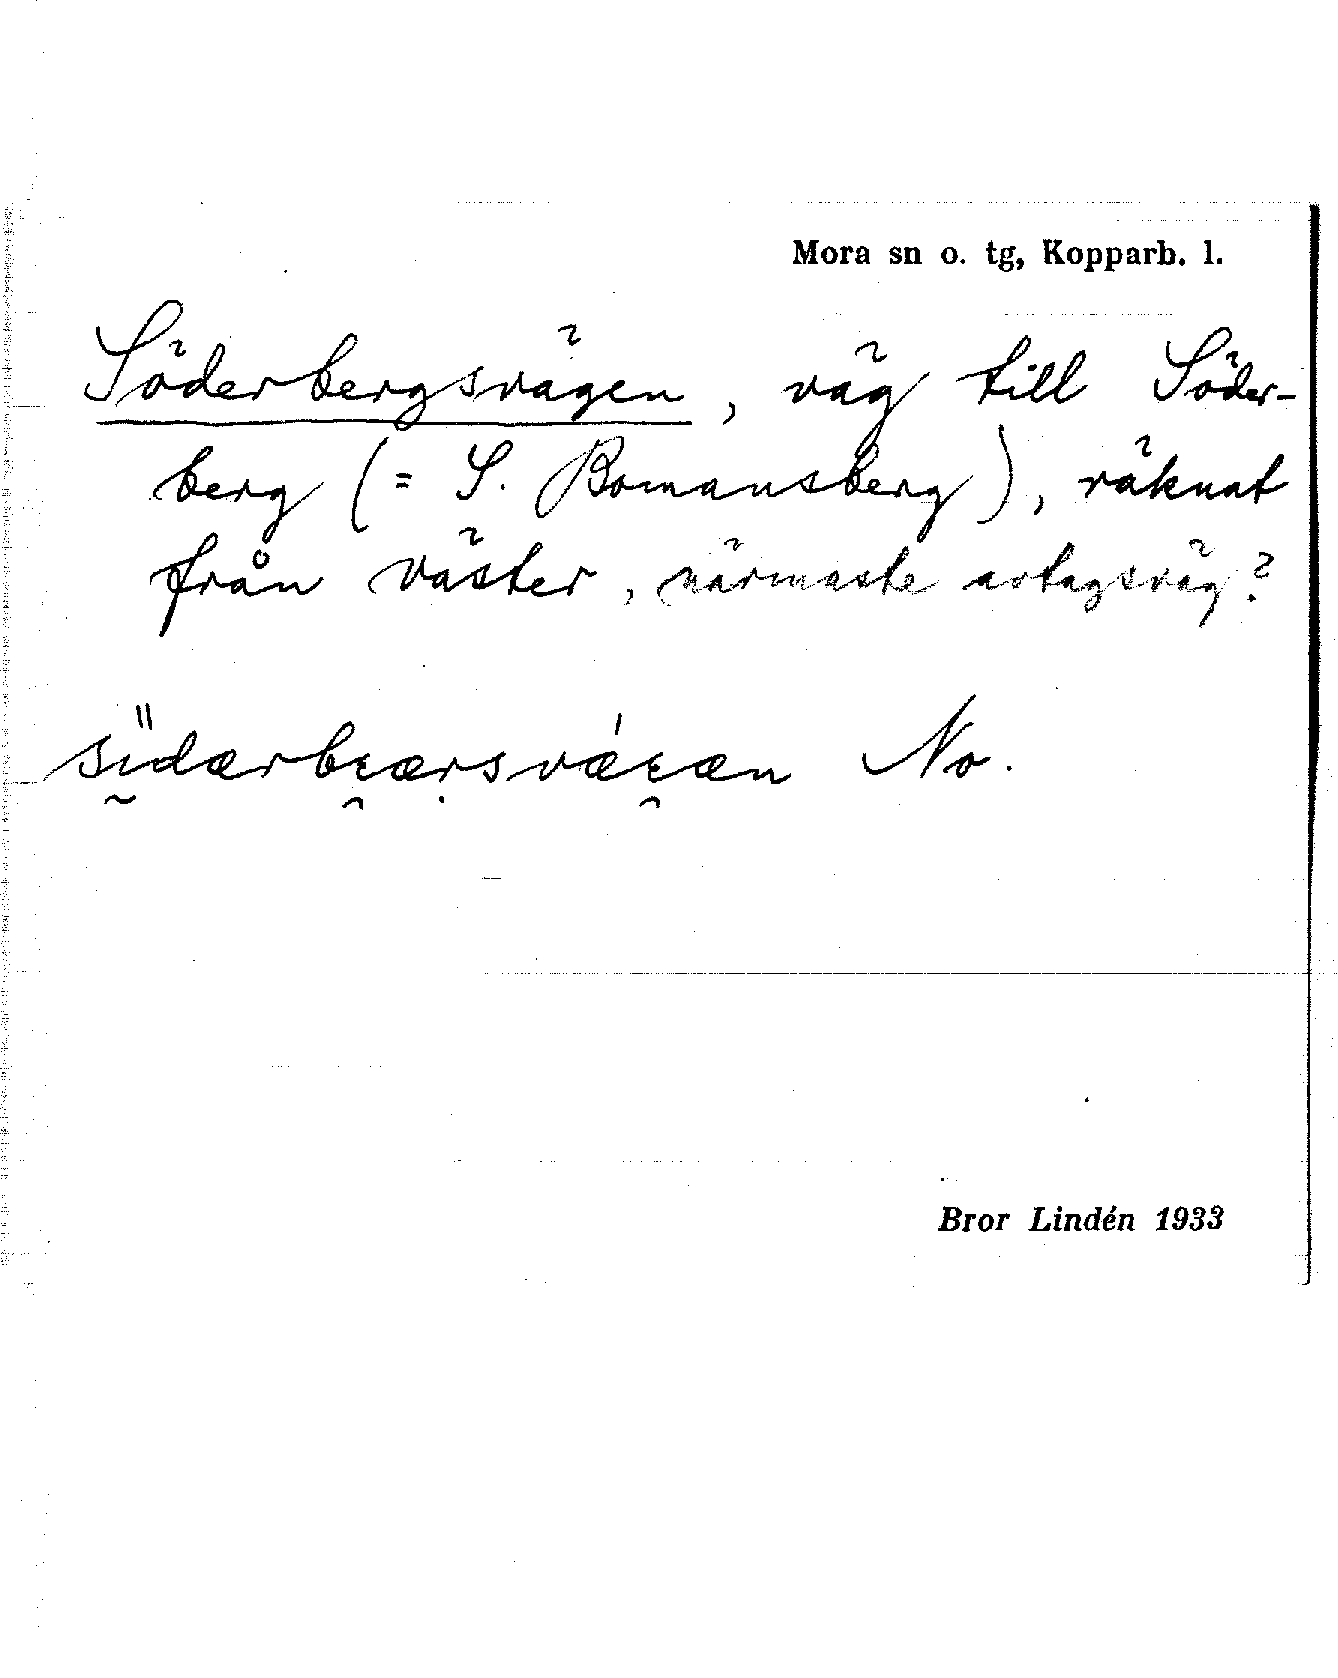 Mora sn o. tg, Kopparb. l.
Söderbergsvägen, väg till Söder-
berg (= S. Bomansberg), räknat
från väster, närmaste avtagsväg?
No.
Bror Lindén 1933